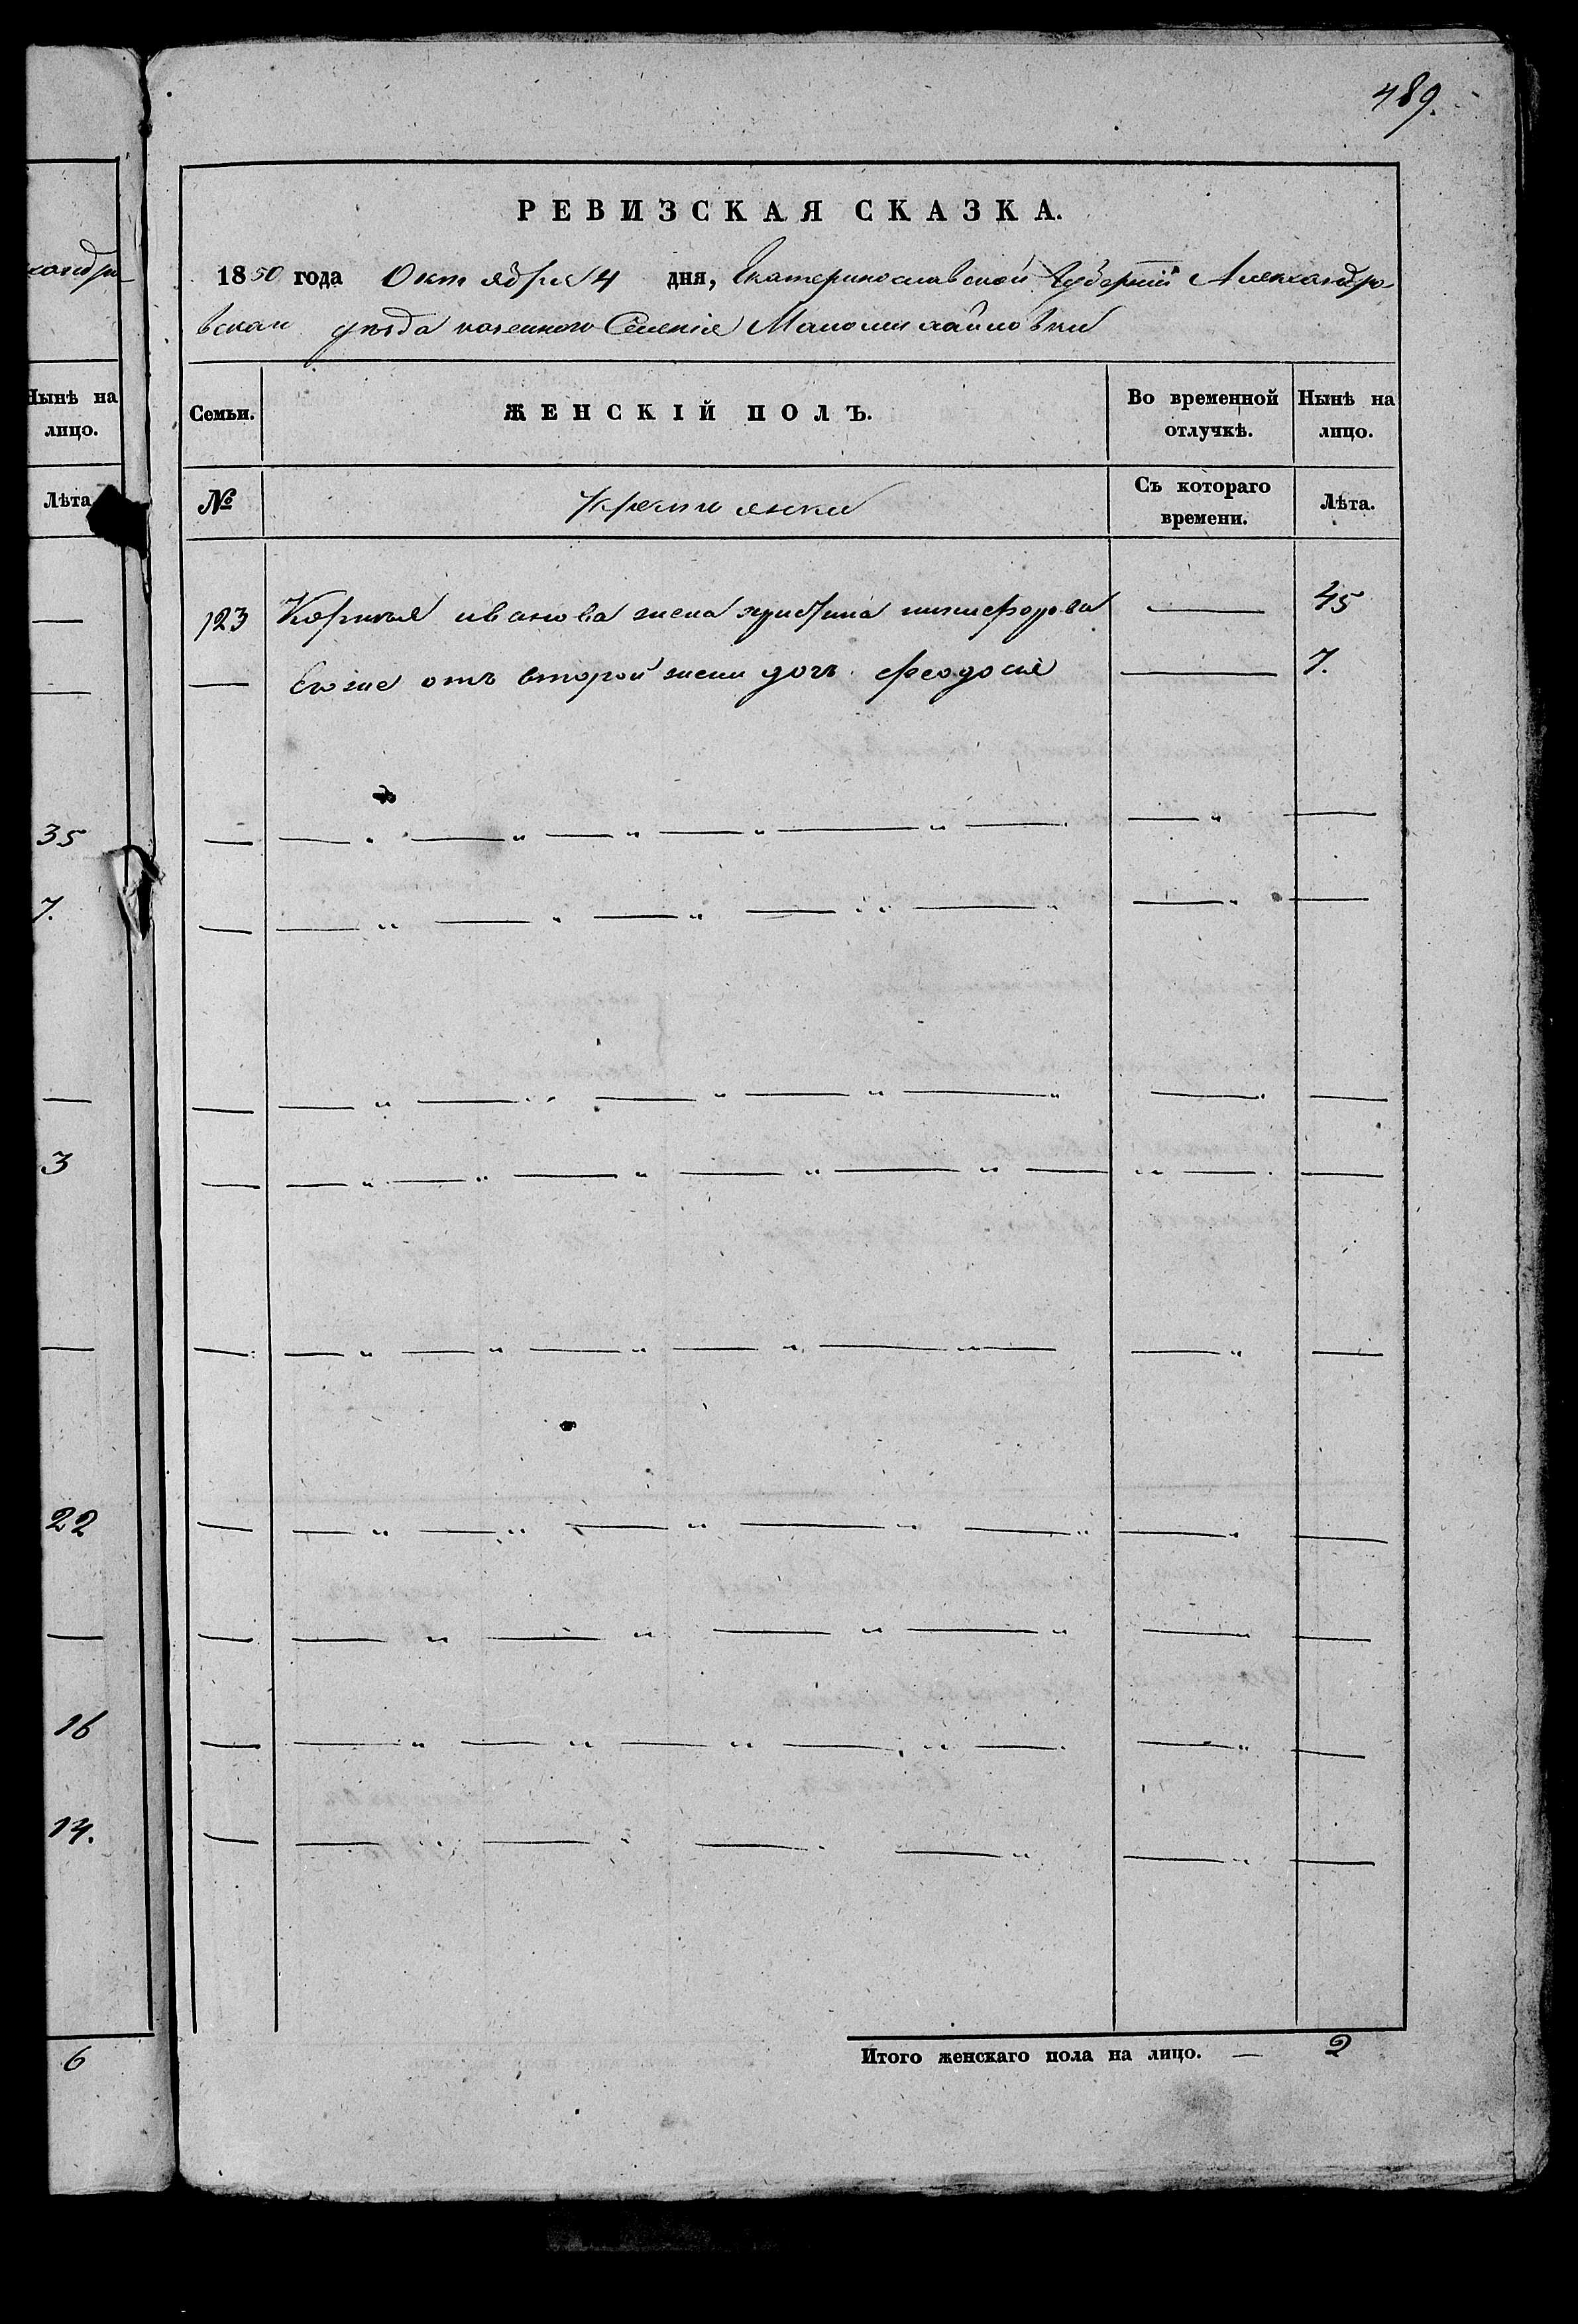 489.
РЕВИЗСКАЯ СКАЗКА.
1850 года Октября 4 дня, Екатеринославской Губерніи Александро
вскаи уезда казенного Селенія Маломихайловки
Семьи.
ЖЕНСКІЙ ПОЛЪ.
Во временной отлучкѣ.
Нынѣ на лицо.
№
Крестьянки
Съ котораго времени.
Лѣта.
123 Корнилія иванова жена христина никифорова — 45
— Егоже отъ второй жени дочъ феодосія — 7.
Итого женскаго пола на лицо. — 2
кандро
Нынѣ на
лицо.
Лѣта
—
—
35
7.
—
3
—
22
—
16
14.
6